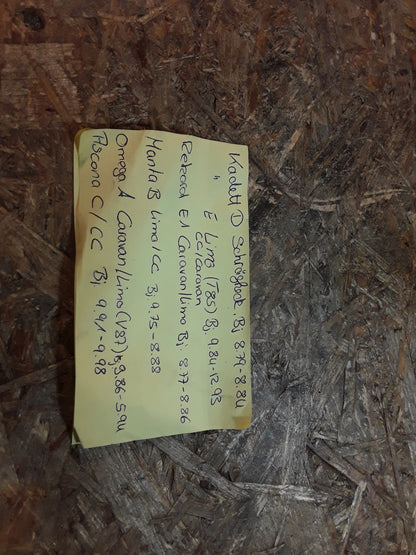 Kadett D Schrägheck. Bj 8.79-8.84
" E Limo (T85) Bj 9.84-12.93
CC/Caravan
Rekord E1 Caravan/Limo Bj. 8.77-8.86
Manta B Limo/CC Bj 9.75-8.88
Omega A Caravan/Limo (V87) Bj 9.86-5.94
Ascona C/CC Bj 9.91-9.98